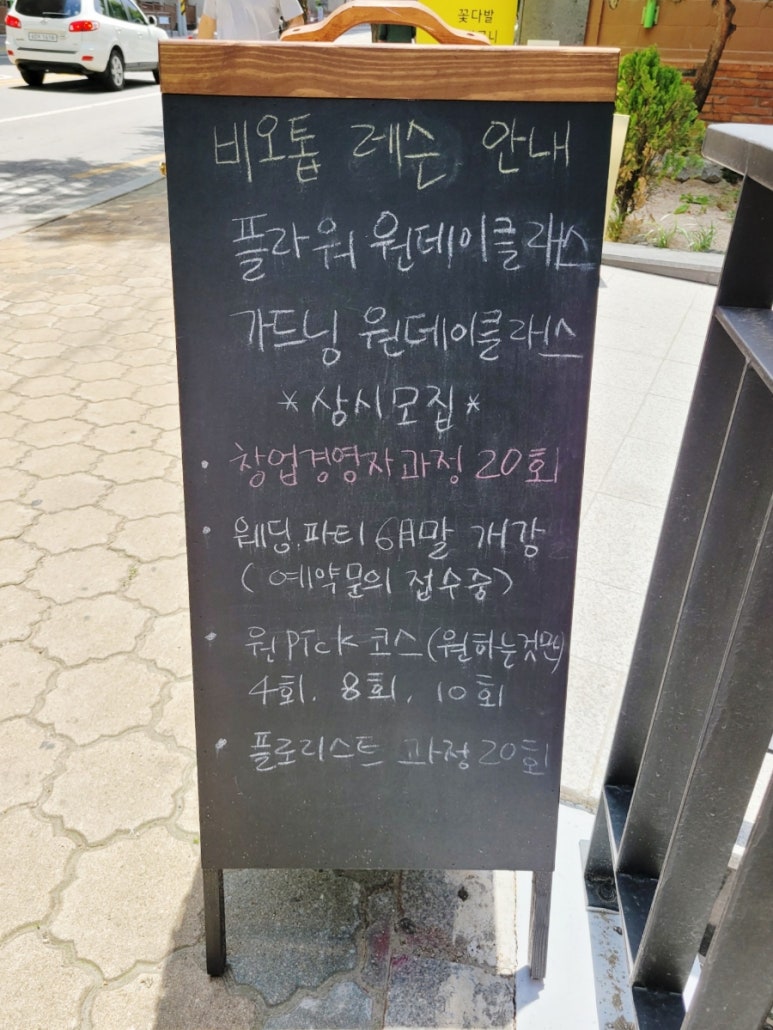 꽃다발
비오톱 레슨 안내
플라워 원데이클래스
가드닝 원데이클래스
*상시모집*
• 창업경영자과정 20회
• 웨딩.파티 6月말 개강
(예약문의 접수중)
• 원PIck 코스(원하는것만)
4회. 8회. 10회
• 플로리스트 과정20회